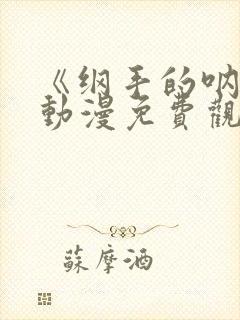 《纲手的呐
動漫免費觀
蘇摩酒